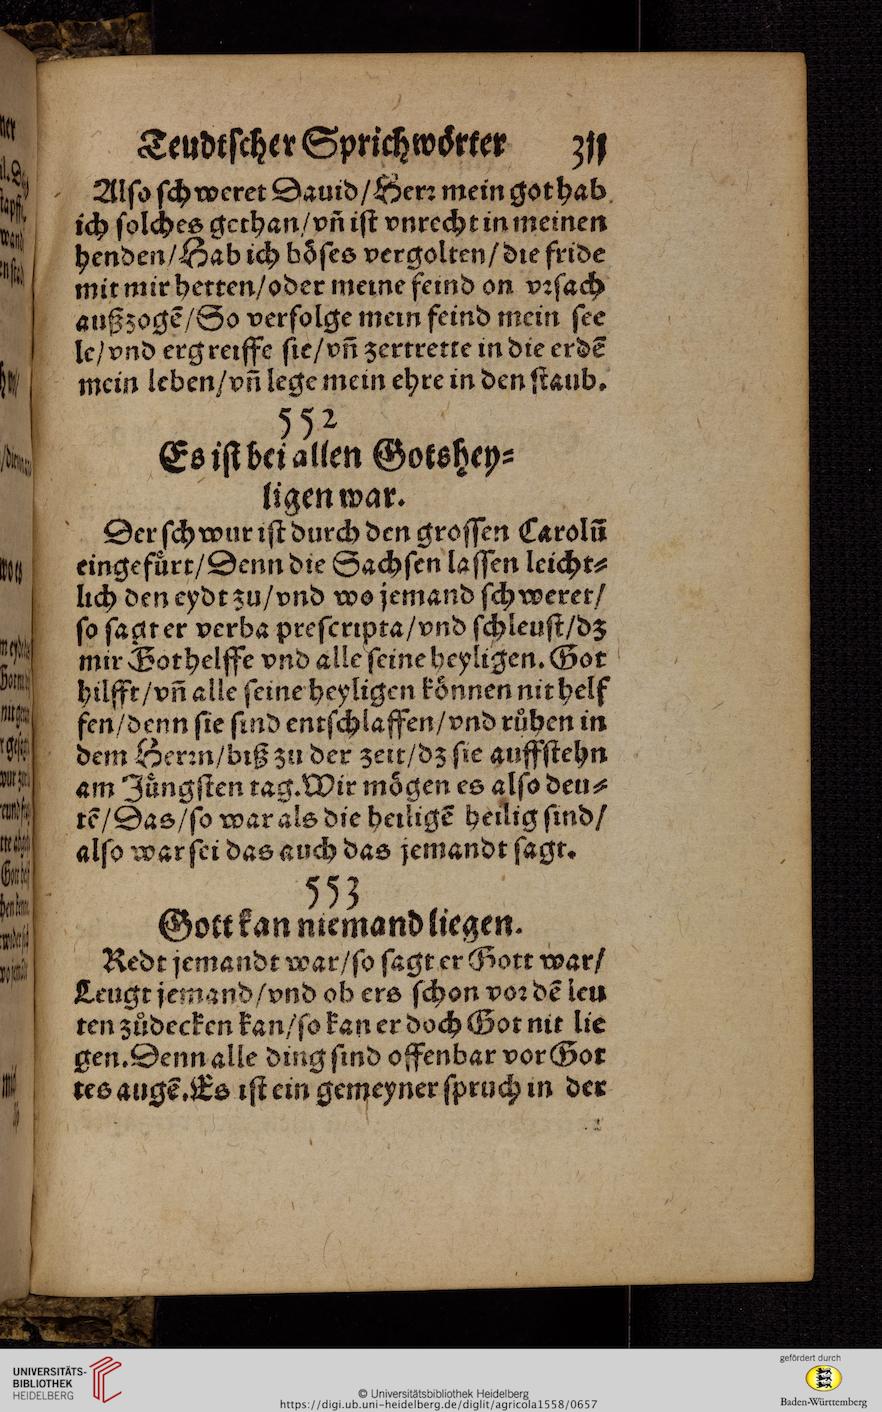 Teudtscher Sprichwörter 311
Also schweret Dauid/Herr mein got hab
ich solches gethan/vñ ist vnrecht in meinen
henden/Hab ich böses vergolten/die fride
mit mir hetten/oder meine feind on vrsach
außzogẽ/So verfolge mein feind mein see
le/vnd ergreiffe sie/vñ zertrette in die erdẽ
mein leben/vñ lege mein ehre in den staub.
552
Es ist bei allen Gotshey⸗
ligen war.
Der schwur ist durch den grossen Carolũ
eingefůrt/Denn die Sachsen lassen leicht⸗
lich den eydt zu/vnd wo jemand schweret/
so sagt er verba prescripta/vnd schleust/dz
mir Got helffe vnd alle seine heyligen. Got
hilfft/vñ alle seine heyligen können nit helf
fen/denn sie sind entschlaffen/vnd růhen in
dem Herrn/biß zu der zeit/dz sie auffstehn
am Jůngsten tag. Wir mögen es also deu⸗
tẽ/Das/so war als die heiligẽ heilig sind/
also war sei das auch das jemandt sagt.
553
Gott kan niemand liegen.
Redt jemandt war/so sagt er Gott war/
Leugt jemand/vnd ob ers schon vor dẽ leu
ten zůdecken kan/so kan er doch Got nit lie
gen. Denn alle ding sind offenbar vor Got
tes augẽ. Es ist ein gemeyner spruch in der
UNIVERSITÄTS-
BIBLIOTHEK
HEIDELBERG
© Universitätsbibliothek Heidelberg
https://digi.ub.uni-heidelberg.de/diglit/agricola1558/0657
gefördert durch
Baden-Württemberg